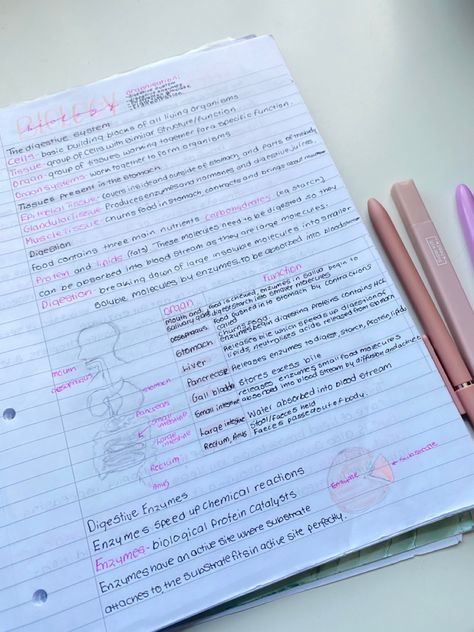 BIOLOGY
Organisation:
The digestive system
Cells - basic building blocks of all living organisms
Tissue - group of cells with similar structure/function
Organ - group of tissues working together for a specific function.
Organ systems - work together to form organisms.
Tissues present in the stomach
Epithelial tissue - covers inside and outside of stomach, and parts of
Glandular tissue - Produces enzymes and hormones and digestive juices.
Muscle tissue - Churns food in stomach, contracts and brings about
Digestion
Food contains three main nutrients carbohydrates (eg starch)
Protein and lipids (fats). These molecules need to be digested so they
can be absorbed into blood stream as they are large molecules.
Digestion - breaking down of large insoluble molecules into smaller
soluble molecules by enzymes, to be absorbed into bloodstream
organ
Function
mouth and salivary gland
food is chewed, enzymes in saliva begin to digest starch into smaller molecules
oesophagus
food pushed into stomach by contractions
Stomach
churns food
enzymes begin digesting proteins contains HCL
Liver
Releases bile which speeds up digestion of lipids, neutralises acids released from stomach
Pancreas
Releases enzymes to digest, starch, protein, lipids
Gall bladder
Stores excess bile
Small intestine
releases enzymes small food molecules absorbed into blood stream by diffusion and active
Large intestine
Water absorbed into blood stream
Rectum, Anus
Stool/Faeces held
Faeces passed out of body.
mouth
oesophagus
stomach
Pancreas
small intestine
Large intestine
Rectum
Anus
Digestive Enzymes
Enzymes speed up chemical reactions
Enzymes - biological protein catalysts
Enzymes have an active site where substrate
attaches to, the substrate fits in active site perfectly.
Enzyme
Substrate